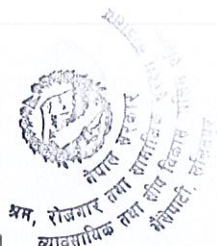 नेपाल सरकार
श्रम, रोजगार तथा सामाजिक
व्यावसायिक तथा शीप विकास
भैंसेपाटी, ललितपुर